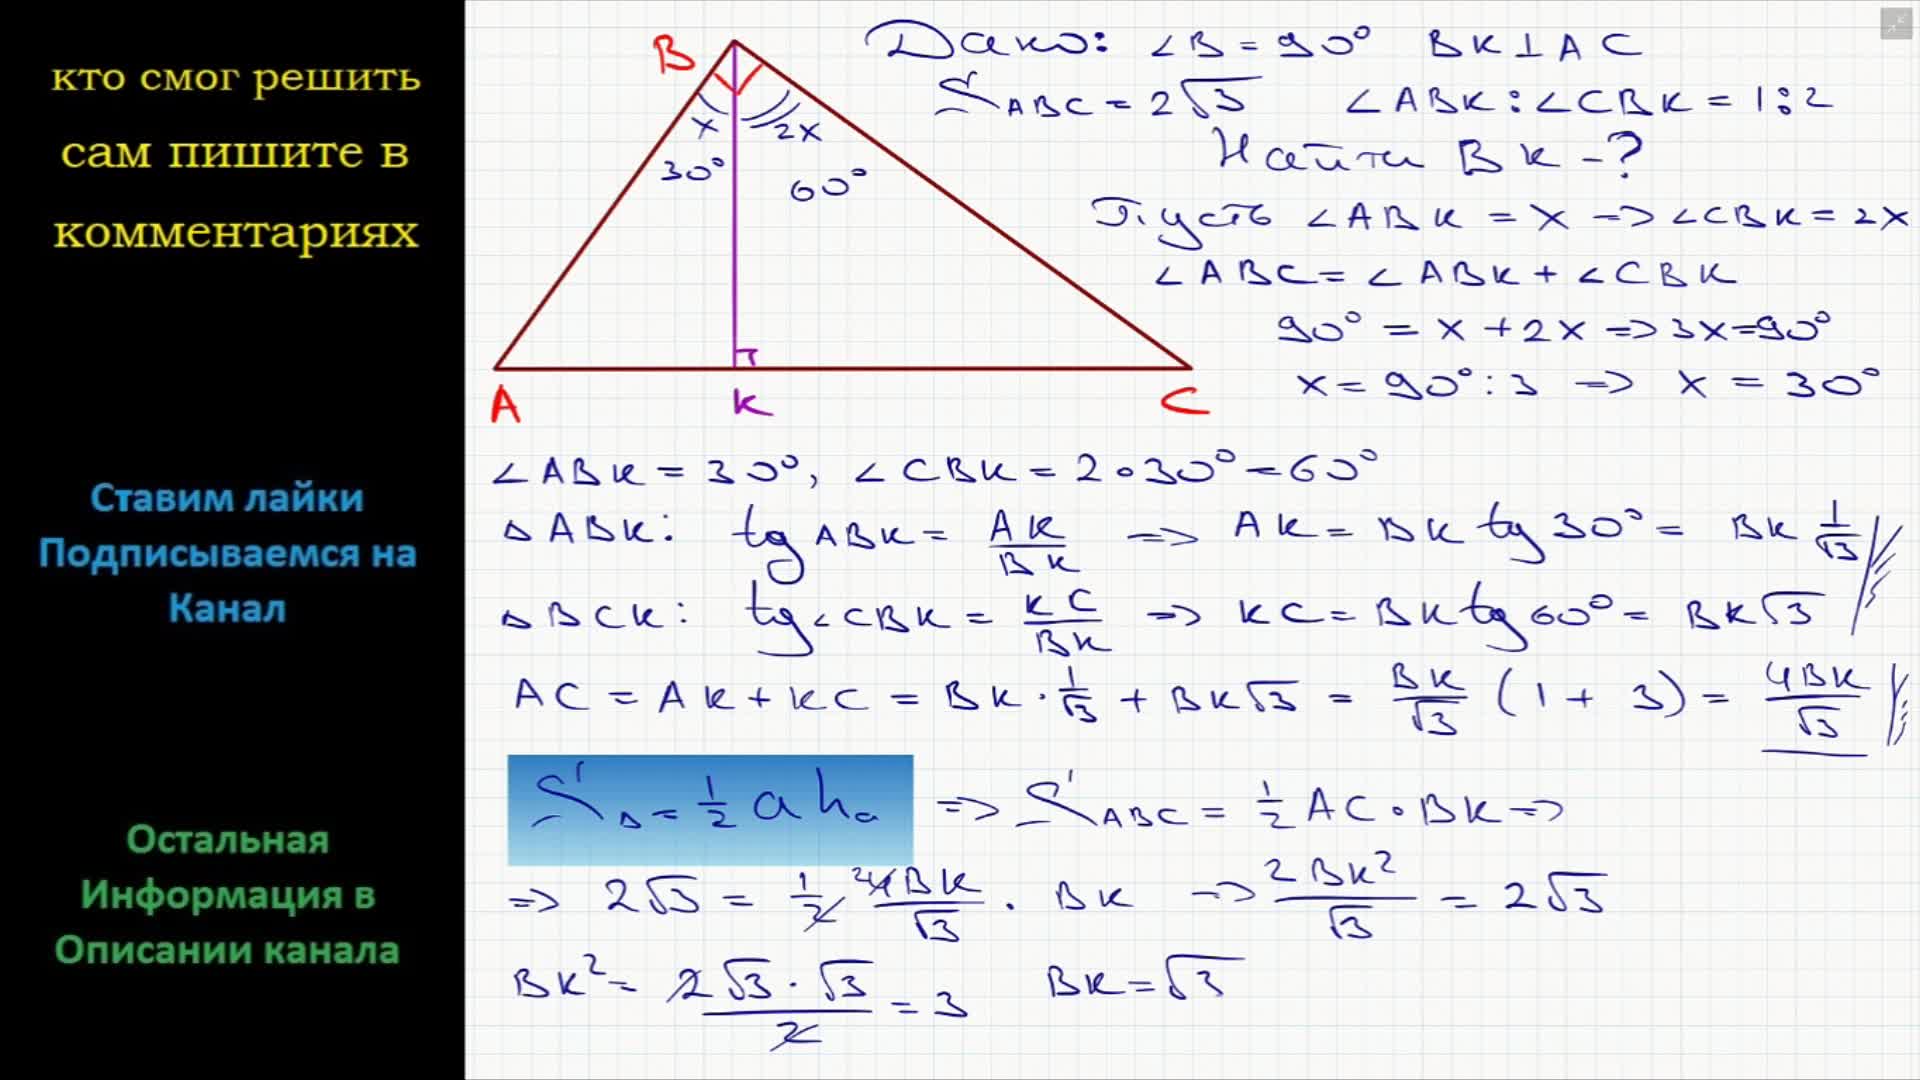 кто смог решить
сам пишите в
комментариях
Ставим лайки
Подписываемся на
Канал
Остальная
Информация в
Описании канала
B
x 2x
30° 60°
A K C
Дано: ∠B = 90° BK⊥AC
S_ABC = 2√3 ∠ABK : ∠CBK = 1:2
Найти BK - ?
Пусть ∠ABK = x => ∠CBK = 2x
∠ABC = ∠ABK + ∠CBK
90° = x + 2x => 3x = 90°
x = 90° : 3 => x = 30°
∠ABK = 30°, ∠CBK = 2·30° = 60°
△ABK: tg ABK = AK/BK => AK = BK tg 30° = BK 1/√3
△BCK: tg∠CBK = KC/BK => KC = BK tg 60° = BK√3
AC = AK + KC = BK · 1/√3 + BK√3 = BK/√3 (1 + 3) = 4BK/√3
S_△ = 1/2 a hₐ => S_ABC = 1/2 AC · BK =>
=> 2√3 = 1/2 ²4BK/√3 · BK => 2BK²/√3 = 2√3
BK² = 2√3·√3/2 = 3 BK = √3